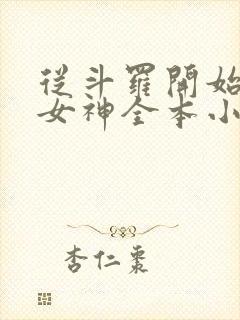 從斗羅開始
女神全本小
杏仁棗